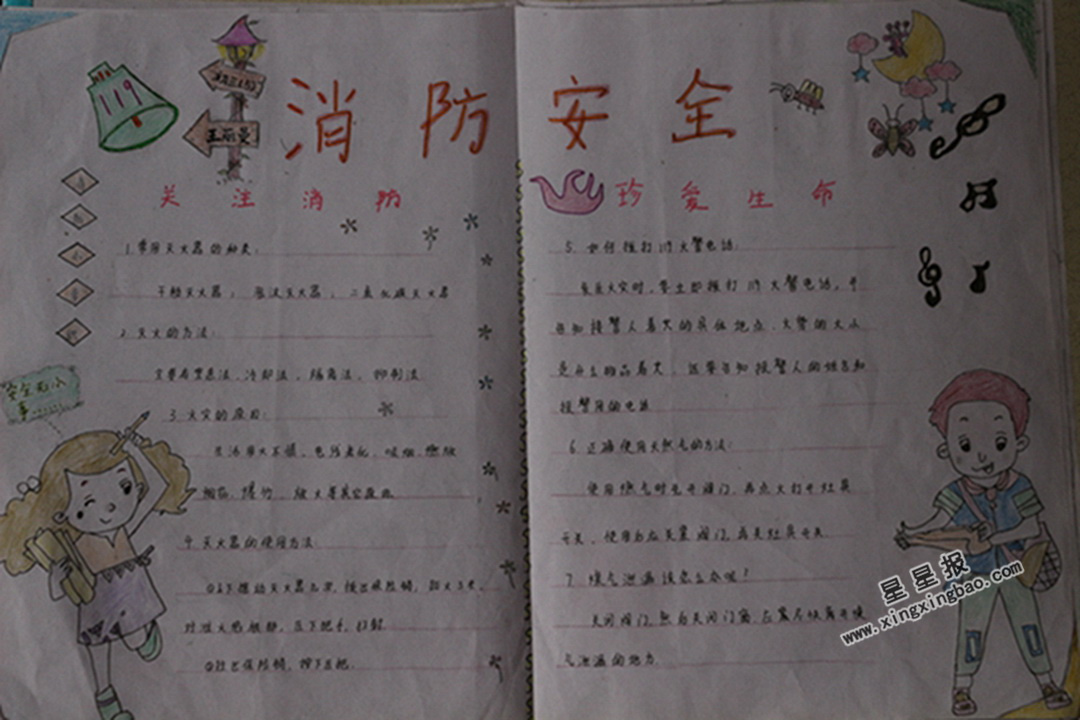 119
王丽曼
消防安全
关注消防
珍爱生命
安全无小
事……
1.常用灭火器的种类:
干粉灭火器; 泡沫灭火器; 二氧化碳灭火器
2.灭火的方法:
主要有窒息法、冷却法、隔离法、抑制法
3.火灾的原因:
生活用火不慎、电线老化、吸烟、燃放
烟花、爆竹、放火等其它原因
4.灭火器的使用方法:
①上下摆动灭火器几次,拔出保险销,距火3米,
对准火焰根部,压下把手,扫射.
②拉出保险销,按下压把.
5.如何拨打119火警电话:
发生火灾时,要立即拨打119火警电话,并
告知接警人着火的具体地点、火势的大小
是什么物品着火,还要告知接警人的姓名和
报警用的电话
6.正确使用天然气的方法:
使用燃气时先开阀门,再点火打开灶具
开关,使用后应先关阀门,再关灶具开关
7.煤气泄漏该怎么办呢?
关闭阀门,然后关闭门窗,立离开煤
气泄漏的地方
星星报
www.xingxingbao.com